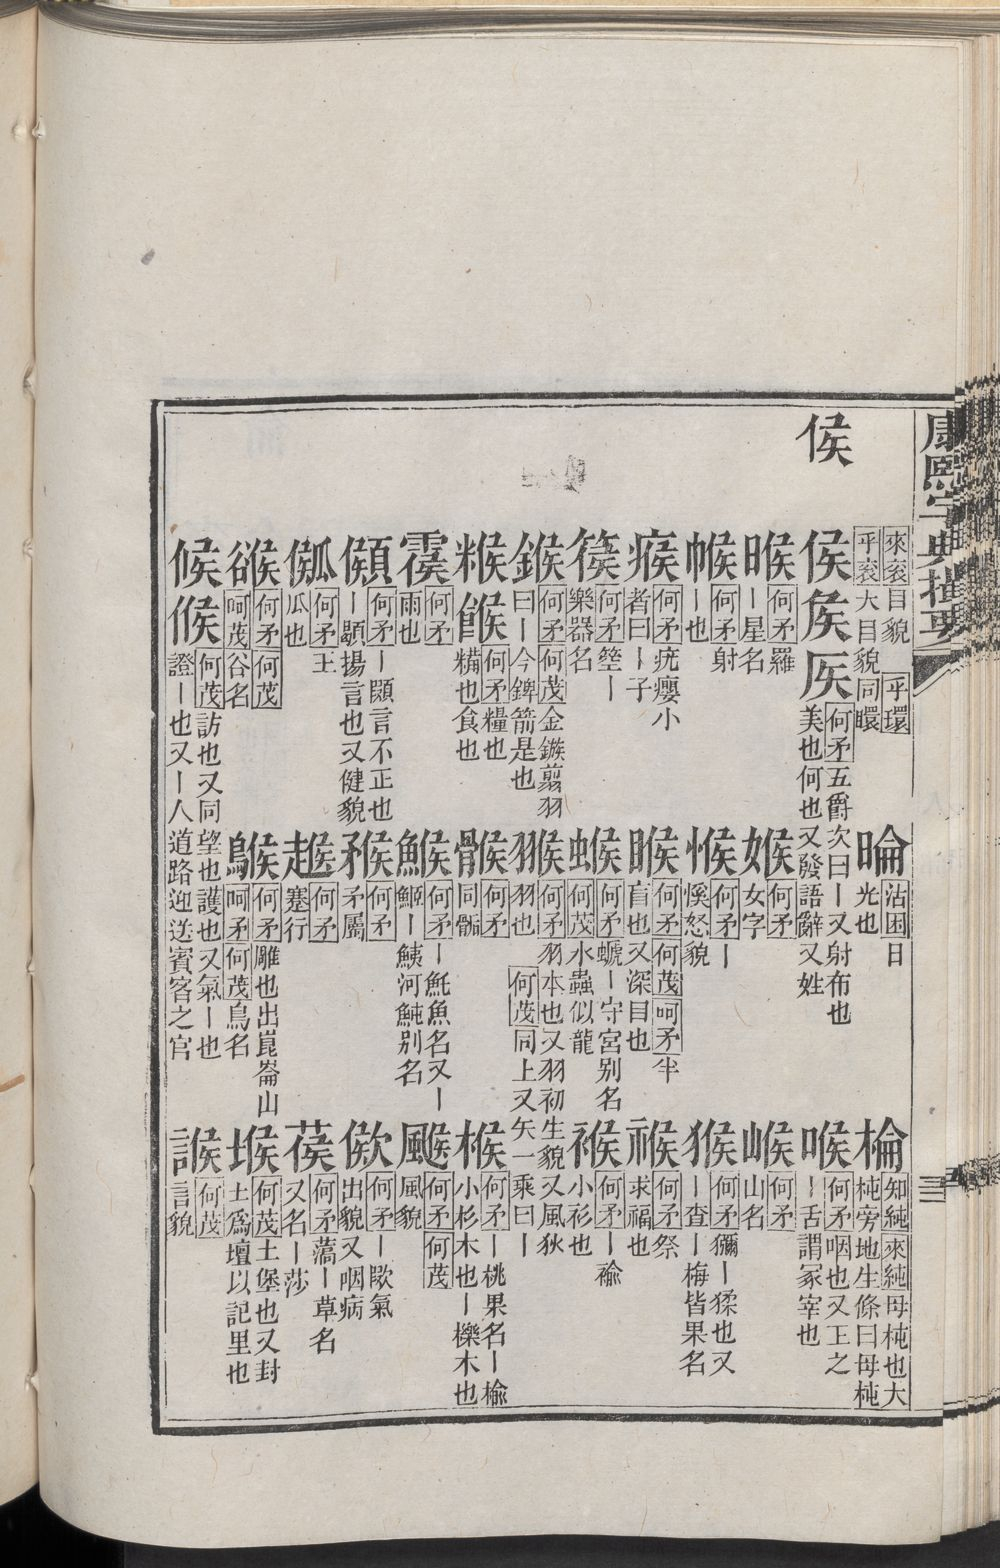 康熙字典撮要
侯
來袞目貌 平環
平袞大目貌同睘
睔 沽困日光也
棆 知純來純母杶也大杶旁地生條曰母杶
侯矦𥎦 何矛五爵次曰一又射布也美也何也又發語辭又姓
喉 何矛咽也又王之一舌謂冢宰也
睺 何矛羅一星名
㛋 何矛女字
㬋 何矛山名
帿 何矛射一也
㤧 何矛一㥒怒貌
猴 何矛獼一猱也又一查一梅皆果名
瘊 何矛疣癭小者曰一子
睺 何矛何茂呵矛半盲也又深目也
𥚦 何矛祭求福也
篌 何矛箜一樂器名
㺅 何矛蠦一守宮别名何茂水蟲似龍
𧙺 何矛一褕小衫也
鍭 何矛何茂金鏃翦羽曰一今錍箭是也
翭 何矛羽本也又羽初生貌又風狄羽羽也 何茂同上又矢一乘曰一
糇餱 何矛糧也糒也食也
骺 何矛同骷
㮢 何矛一桃果名一榆小杉木也一櫟木也
霚 何矛雨也
鯸 何矛一䰳魚名又一鮔一鮧河魨别名
䫛 何矛何茂風貌
𩑺 何矛一顕言不正也一顤揚言也又健貌
㺅 何矛矛屬
𣣠 何矛一歍氣出貌又咽病
𤬈 何矛王瓜也
趥 何矛蹇行
葔 何矛蔏一草名又名一莎
𧮶 何矛何茂呵茂谷名
鯸 何矛雕也出崑崙山呵矛何茂鳥名
堠 何茂土堡也又封土爲壇以記里也
候𠋫 何茂訪也又同望也護也又氣一也證一也又一人道路迎送賓客之官
𧩨 何茂言貌